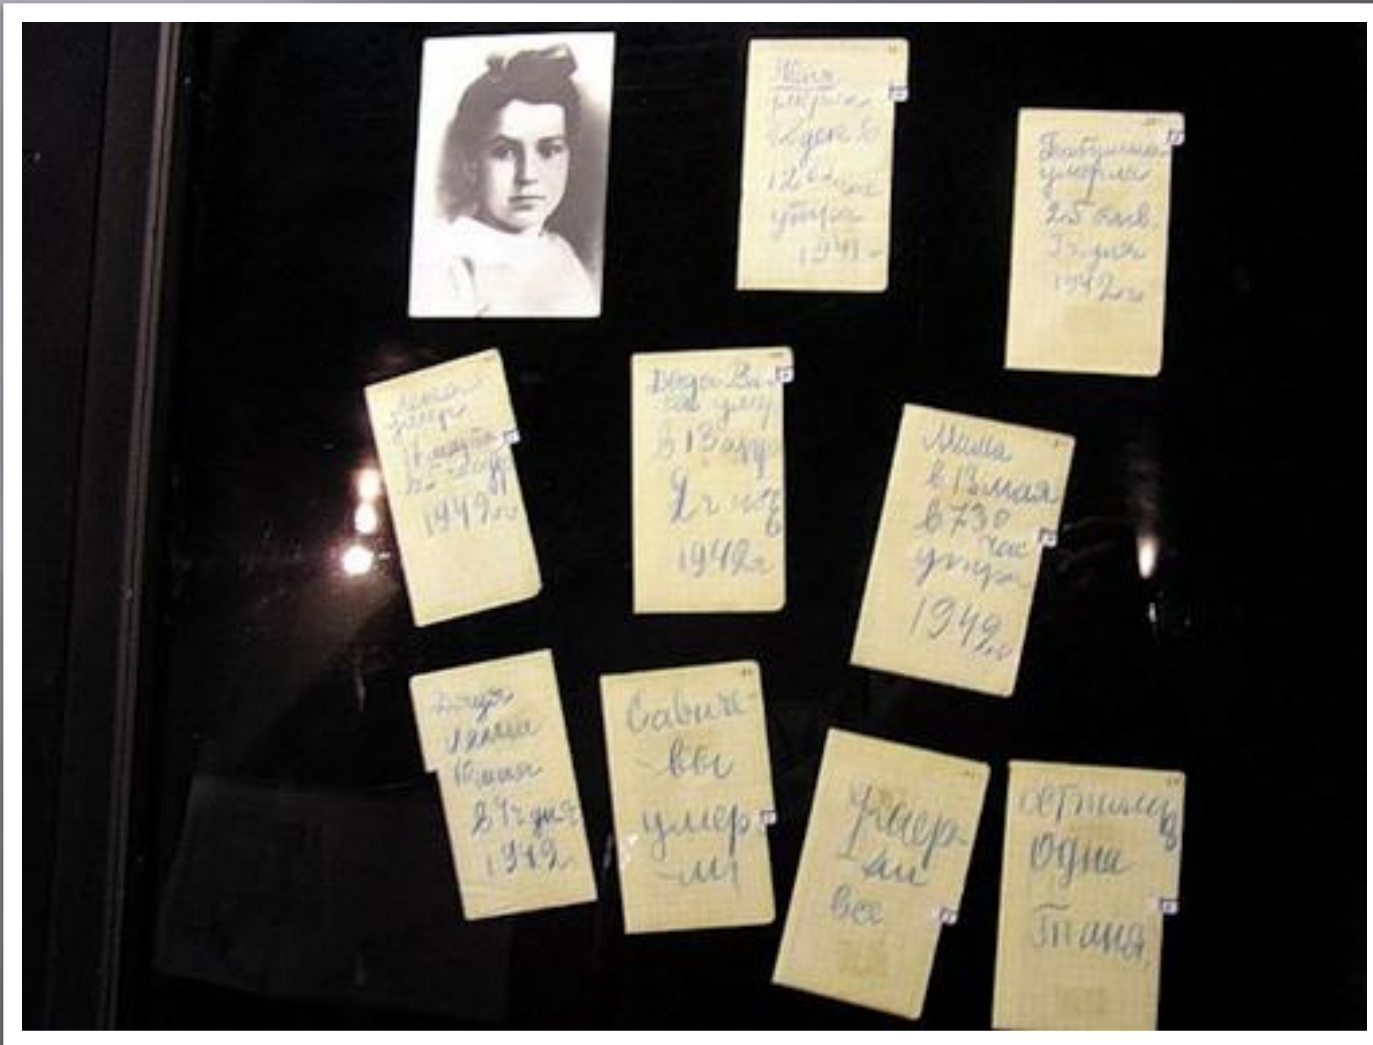 Женя
умерла
28 дек в
12⁰⁰ час
утра
1941 г
Бабушка
умерла
25 янв.
3 ч. дня
1942 г.
умер
17 марта
1942 г
Дядя Ва-
ся умер
в 13 апр
2 ч ноч
1942 г
Мама
в 13 мая
в 7 30
час
утра
1942 г
Дядя
Леша
10 мая
в 4 ч дня
1942
Савиче-
-вы
умер-
-ли
Умер-
ли
все
осталась
одна
Таня.